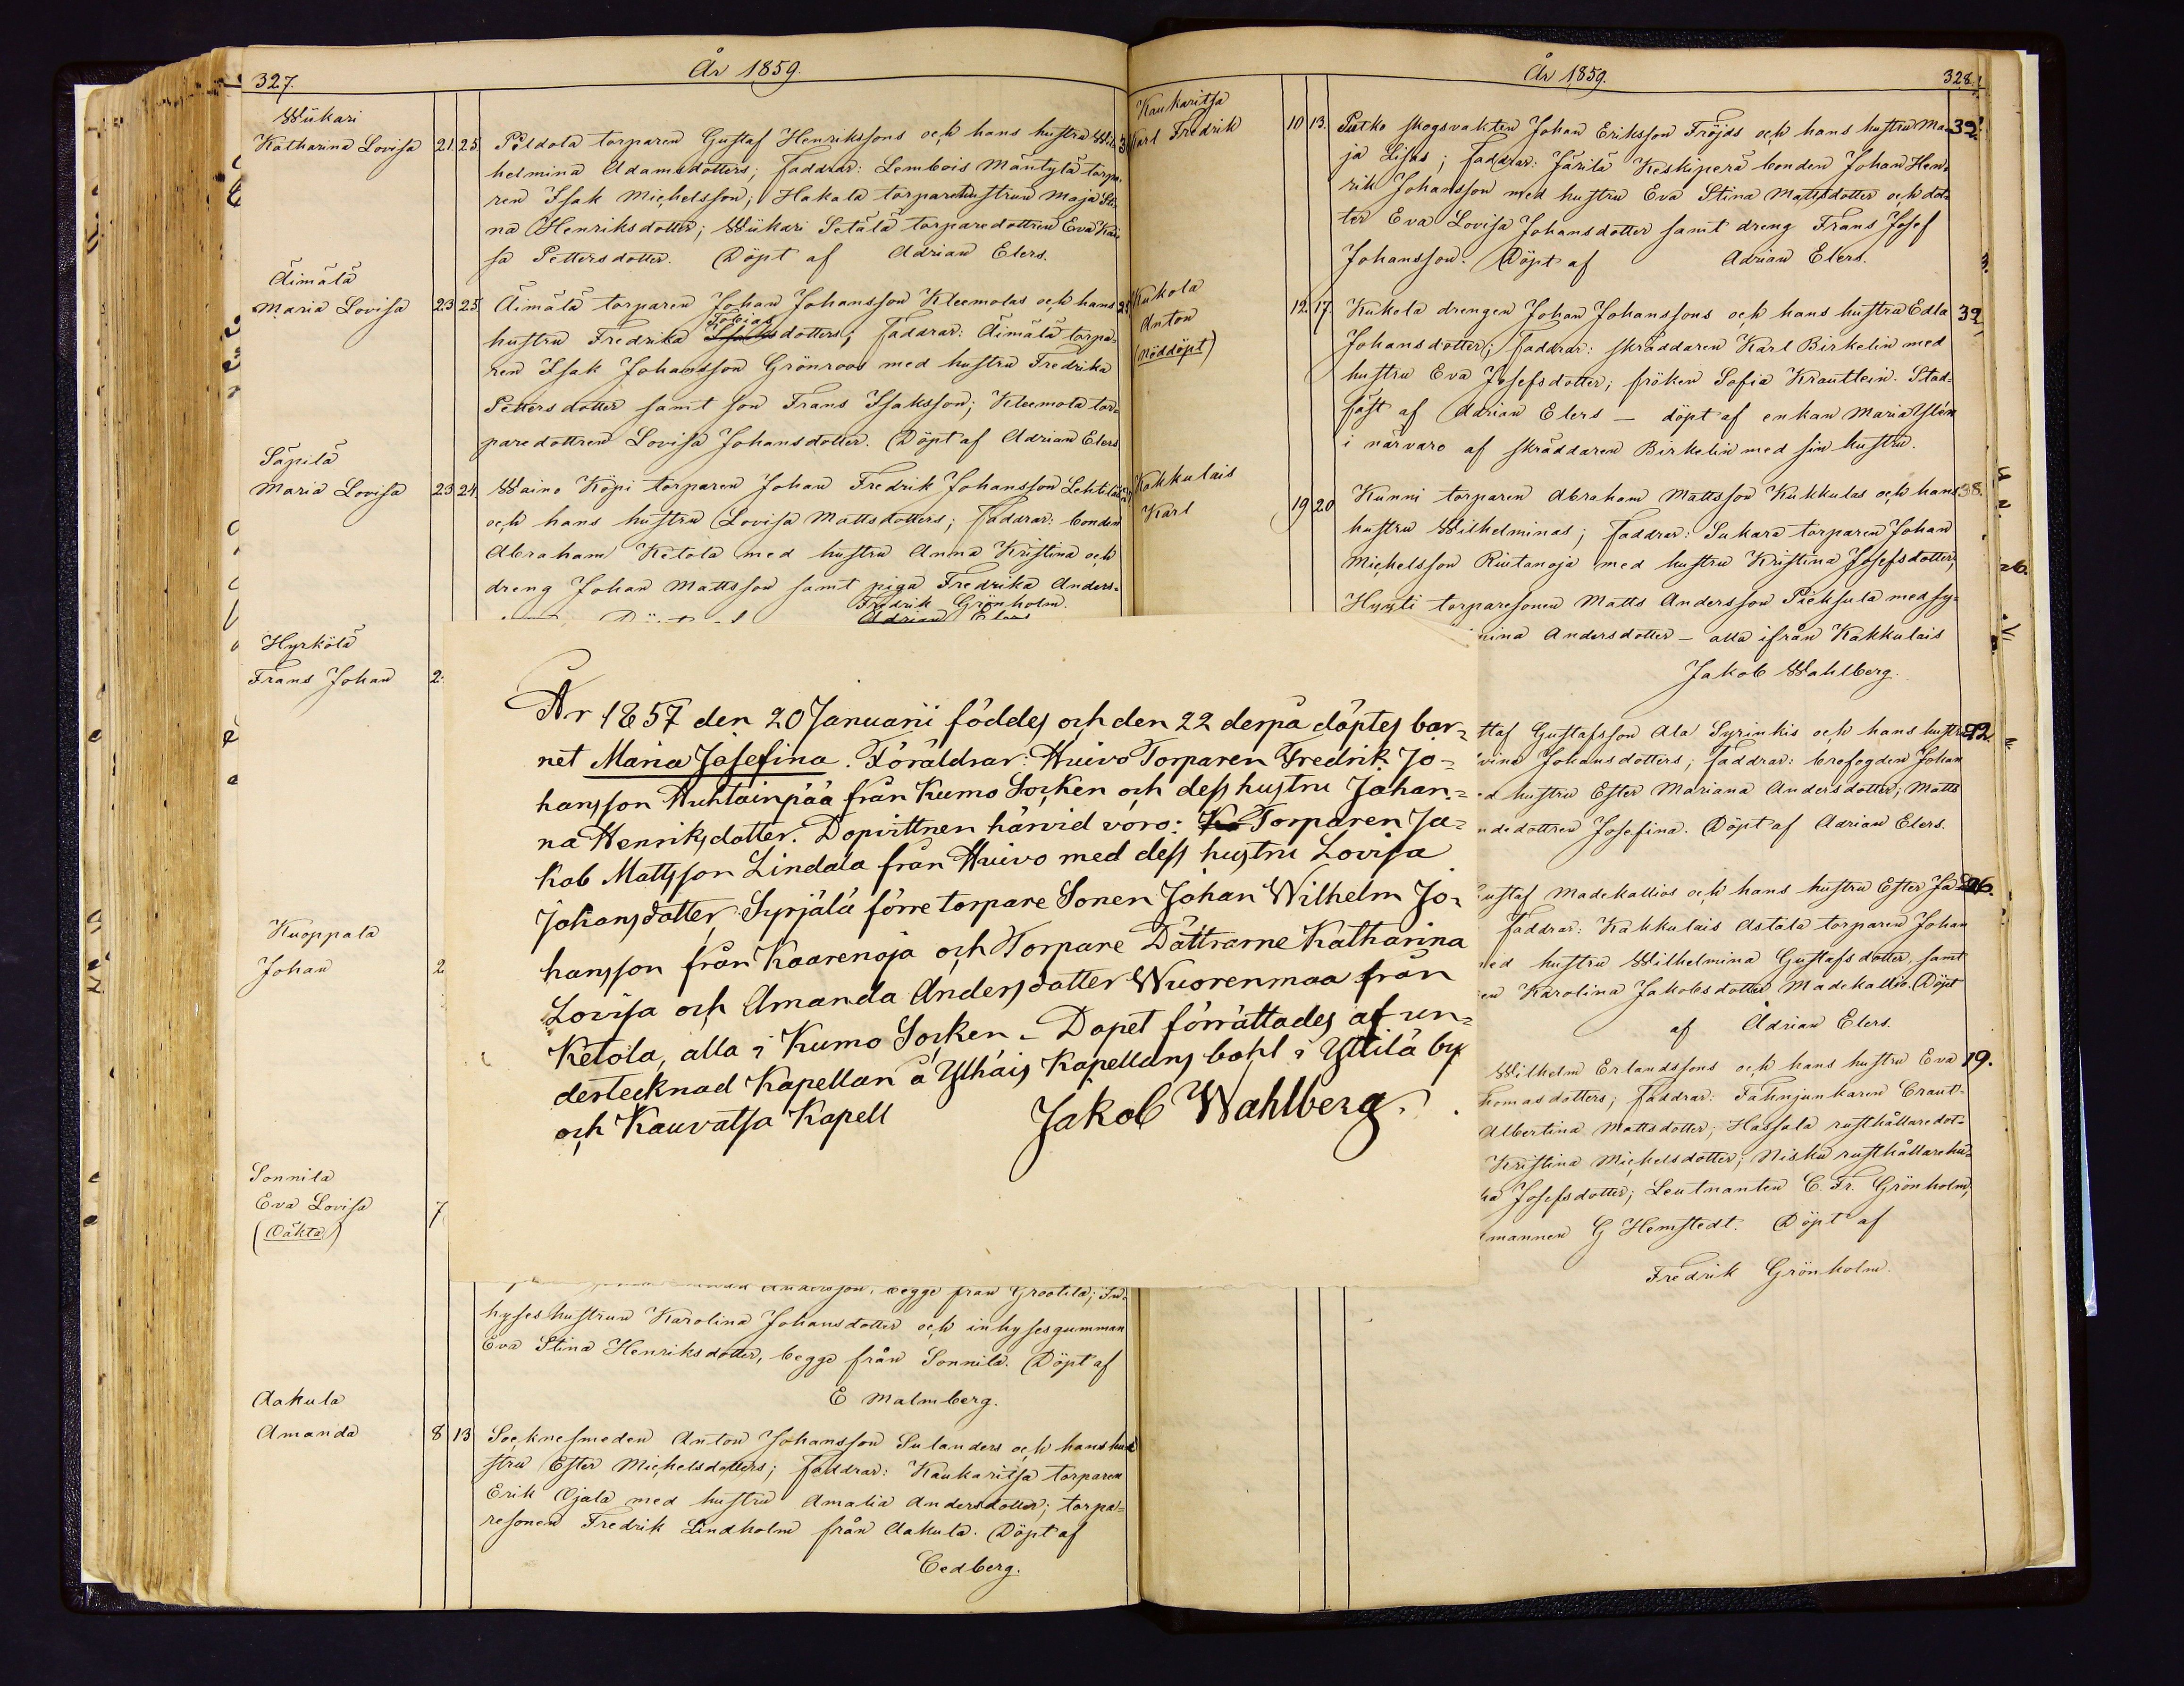 327.
År 1859.
Wiikari
Katharina Lovisa 21. 25. Pildola torparen Gustaf Henrikssons och hans hustru Wil-
helmina Adamsdotters; faddrar: Lembois Mäntylä torpa-
ren Isak Michelsson; Hakala torparehustrun Maja Sti-
na Henriksdotter; Wiikari Setälä torparedottren Eva Kai-
sa Pettersdotter. Döpt af Adrian Elers.
Äimälä
Maria Lovisa 23 25. Äimälä torparen Johan Johansson Kleemolas och hans
Tobias
hustru Fredrika Isaksdotters; faddrar: Äimälä torpa-
ren Isak Johansson Grönroos med hustru Fredrika
Pettersdotter samt son Frans Isaksson; Kleemola tor-
paredottren Lovisa Johansdotter. Döpt af Adrian Elers
Säpilä
Maria Lovisa 23 24. Waino Köpi torparen Johan Fredrik Johansson Lehtiläs
och hans hustru Lovisa Mattsdotters; faddrar: bonden
Abraham Ketola med hustru Anna Kristina och
dreng Johan Mattsson samt piga Fredrika Anders-
Fredrik Grönholm.
Adrian Elers
Hyrkölä
Frans Johan 2
Kuoppala
Johan 2
Sonnila
Eva Lovisa 7
(Oäkta)
Andersson, begge från Grootila; In-
hyseshustrun Karolina Johansdotter och inhysesgumman
Eva Stina Henriksdotter, begge från Sonnila. Döpt af
E Malmberg.
Aakula
Amanda 8 13 Socknesmeden Anton Johansson Sulanders och hans hu-
stru Ester Michelsdotters; faddrar: Kaukaritsa torparen
Erik Ojala med hustru Amalia Andersdotter; torpa-
resonen Fredrik Lindholm från Aakula. Döpt af
Cedberg.
År 1857 den 20 Januarii föddes och den 22 derpå döptes bar-
net Maria Josefina. Föräldrar: Huivo Torparen Fredrik Jo-
hansson Huhtainpää från Kumo Socken och dess hustru Johan-
na Henriksdotter. Dopvittnen härvid voro: Ko Torparen Ja-
kob Mattsson Lindala från Huivo med dess hustru Lovisa
Johansdotter, Syrjälä förre torpare Sonen Johan Wilhelm Jo-
hansson från Kaarenoja och Torpare Döttrarne Katharina
Lovisa och Amanda Andersdotter Wuorenmaa från
Ketola, alla i Kumo Socken – Dopet förrättades af un-
dertecknad Kapellan å Ylhäis Kapellans bohl i Yttilä by
och Kauvatsa Kapell Jakob Wahlberg.
År 1859.
328.
Kaukaritsa
Karl Fredrik 10 13. Putko skogsvakten Johan Eriksson Fröjds och hans hustru Ma- 32.
ja Lisas; faddrar: Järilä Keskiperä bonden Johan Hen-
rik Johansson med hustru Eva Stina Mattsdotter och dot-
ter Eva Lovisa Johansdotter samt dreng Frans Josef
Johansson. Döpt af Adrian Elers.
Kukola
Anton 12. 17. Kukola drengen Johan Johanssons och hans hustru Edla 32
(nöddöpt) Johansdotter; faddrar: skräddaren Karl Birkelin med
hustru Eva Josefsdotter; fröken Sofia Krautlein. Stad-
fäst af Adrian Elers – döpt af enkan Maria Ylén
i närvaro af skräddaren Birkelin med sin hustru.
Kakkulais
Karl 19 20 Kunni torparen Abraham Mattsson Kukkulas och hans 38.
hustru Wilhelminas; faddrar: Sukara torparen Johan
Michelsson Riutanoja med hustru Kristina Josefsdotter;
Hyyti torparesonen Matts Andersson Pieksula med sy-
mina Andersdotter – alla ifrån Kakkulais
Jakob Wahlberg.
taf Gustafsson Ala Syrinkis och hans hustru 22.
vina Johansdotters; faddrar: brofogden Johan
d hustru Ester Mariana Andersdotter; Matts
ndedottren Josefina. Döpt af Adrian Elers.
Gustaf Madekallios och hans hustru Ester Ja- 26.
faddrar: Kakkulais Astala torparen Johan
med hustru Wilhelmina Gustafsdotter, samt
en Karolina Jakobsdotter Madekallio. Döpt
af Adrian Elers.
Wilhelm Erlandssons och hans hustru Eva 19.
homasdotters; faddrar: Fahnjunkaren Craut-
Albertina Mattsdotter; Hassala rusthållaredot-
Kristina Michelsdotter; Nisku rusthållarehu-
ka Josefsdotter; Leutnanten C. Fr. Grönholm,
mannen G Hemstedt. Döpt af
Fredrik Grönholm.